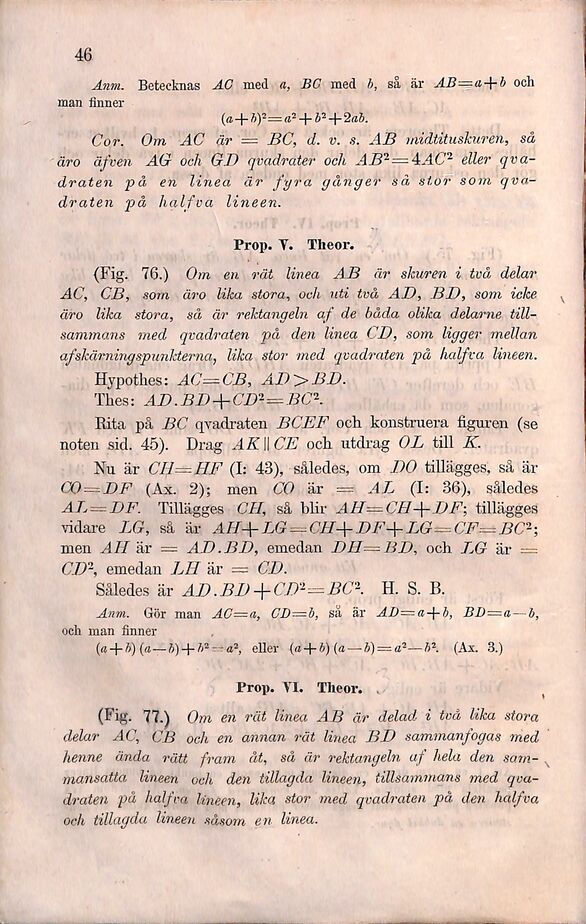 46
Anm. Betecknas AC med a, BC med b, så är AB=a+b och
man finner
(a+b)²=a²+b²+2ab.
Cor. Om AC är = BC, d. v. s. AB midtituskuren, så
äro äfven AG och GD qvadrater och AB²=4AC² eller qva-
draten på en linea är fyra gånger så stor som qva-
draten på halfva lineen.
Prop. V. Theor.
(Fig. 76.) Om en rät linea AB är skuren i två delar
AC, CB, som äro lika stora, och uti två AD, BD, som icke
äro lika stora, så är rektangeln af de båda olika delarne till-
sammans med qvadraten på den linea CD, som ligger mellan
afskärningspunkterna, lika stor med qvadraten på halfva lineen.
Hypothes: AC=CB, AD>BD.
Thes: AD.BD+CD²=BC².
Rita på BC qvadraten BCEF och konstruera figuren (se
noten sid. 45). Drag AK||CE och utdrag OL till K.
Nu är CH=HF (I: 43), således, om DO tillägges, så är
CO=DF (Ax. 2); men CO är = AL (I: 36), således
AL=DF. Tillägges CH, så blir AH=CH+DF; tillägges
vidare LG, så är AH+LG=CH+DF+LG=CF=BC²;
men AH är = AD.BD, emedan DH=BD, och LG är =
CD², emedan LH är = CD.
Således är AD.BD+CD²=BC². H. S. B.
Anm. Gör man AC=a, CD=b, så är AD=a+b, BD=a—b,
och man finner
(a+b)(a—b)+b²=a², eller (a+b)(a—b)=a²—b². (Ax. 3.)
Prop. VI. Theor.
(Fig. 77.) Om en rät linea AB är delad i två lika stora
delar AC, CB och en annan rät linea BD sammanfogas med
henne ända rätt fram åt, så är rektangeln af hela den sam-
mansatta lineen och den tillagda lineen, tillsammans med qva-
draten på halfva lineen, lika stor med qvadraten på den halfva
och tillagda lineen såsom en linea.